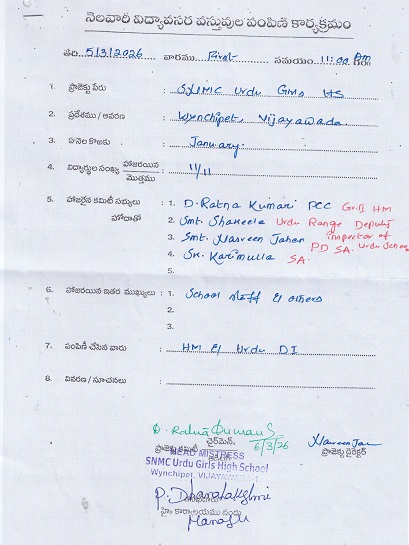 నెలవారీ విద్యావసర వస్తువుల పంపిణీ కార్యక్రమం
తేది 5/3/2026 వారము First సమయం 11:00 Am గం
1. ప్రాజెక్టు పేరు : SNMC Urdu GMS HS
2. ప్రదేశము / ఆవరణ : Wynchipet, Vijayawada
3. ఏనెల కొఱకు : January.
4. విద్యార్థుల సంఖ్య హాజరయిన మొత్తము : 11/11
5. హాజరైన కమిటీ సభ్యులు హోదాతో : 1. D. Ratna Kumari PCC Gr.II HM
2. Smt. Shakeela Urdu Range Deputy Inspector of Urdu Schools
3. Smt. Nasreen Jahan PD SA.
4. Sk. Karimulla SA.
5.
6. హాజరయిన ఇతర ముఖ్యులు : 1. School staff & others
2.
3.
7. పంపిణీ చేసిన వారు : HM & Urdu DI
8. వివరణ / సూచనలు :
D. Ratna Kumari
6/3/26
ఛైర్మెన్,
ప్రాజెక్టు కమిటీ
Nasreen Jan
ప్రాజెక్టు డైరెక్టర్
HEAD MISTRESS
SNMC Urdu Girls High School
Wynchipet, VIJAYAWADA
P. Dhanalakshmi
హై కార్యాలయము నందు